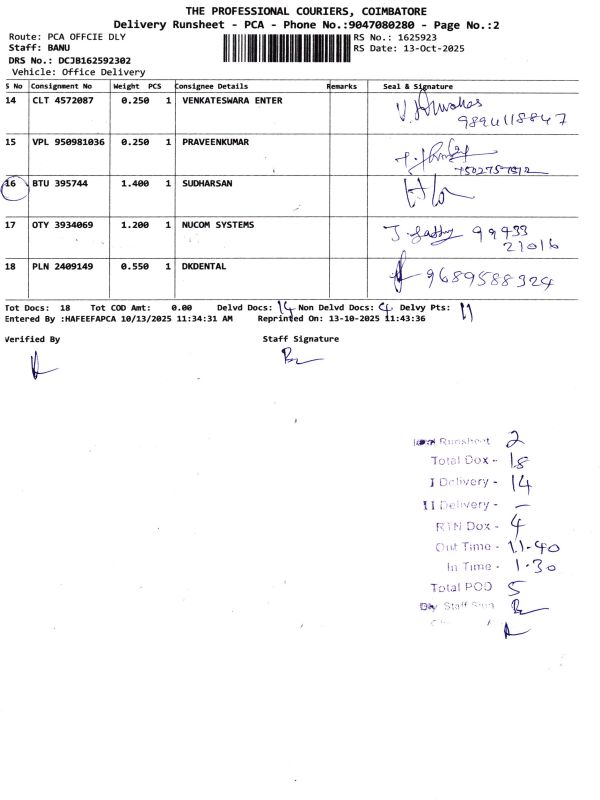 THE PROFESSIONAL COURIERS, COIMBATORE
Delivery Runsheet - PCA - Phone No.:9047080280 - Page No.:2
Route: PCA OFFCIE DLY RS No.: 1625923
Staff: BANU RS Date: 13-Oct-2025
DRS No.: DCJB162592302
Vehicle: Office Delivery
S No Consignment No Weight PCS Consignee Details Remarks Seal & Signature
14 CLT 4572087 0.250 1 VENKATESWARA ENTER
9894118847
15 VPL 950981036 0.250 1 PRAVEENKUMAR
16 BTU 395744 1.400 1 SUDHARSAN
17 OTY 3934069 1.200 1 NUCOM SYSTEMS 99433
21016
18 PLN 2409149 0.550 1 DKDENTAL 9689588924
Tot Docs: 18 Tot COD Amt: 0.00 Delvd Docs: 14 Non Delvd Docs: 4 Delvy Pts: 11
Entered By :HAFEEFAPCA 10/13/2025 11:34:31 AM Reprinted On: 13-10-2025 11:43:36
Verified By Staff Signature
Runsheet 2
Total Dox - 18
I Delivery - 14
II Delivery - –
RTN Dox - 4
Out Time - 11.40
In Time - 1.30
Total POD 5
Dly Staff Sign